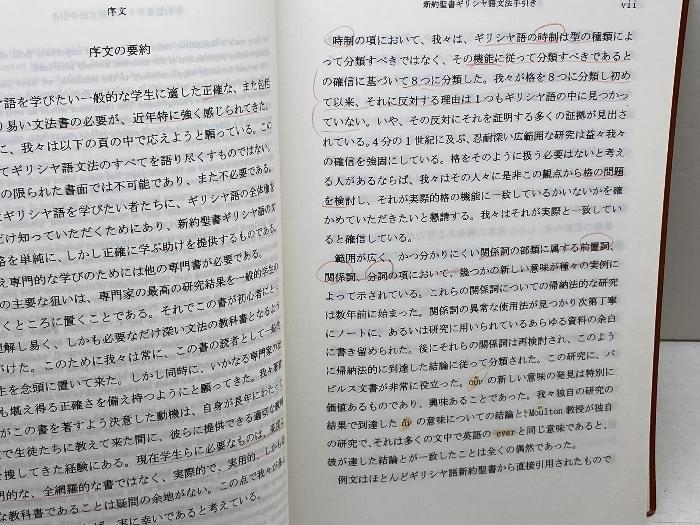 序文
序文の要約
ヤ語を学びたい一般的な学生に適した正確な、また包括
り易い文法書の必要が、近年特に強く感じられてきた。
に、我々は以下の頁の中で応えようと願っている。この
てギリシヤ語文法のすべてを語り尽くすものではない。
の限られた書面では不可能であり、また不必要である。
ギリシヤ語を学びたい者たちに、ギリシヤ語の全体像を
だけ知っていただくためにあり、新約聖書ギリシヤ語の文
格を単純に、しかし正確に学ぶ助けを提供するものである。
え専門的な学びのためには他の専門書が必要である。
の主要な狙いは、専門家の最高の研究結果を一般的学生の
くところに置くことである。それでこの書が初心者にとっ
理解し易く、しかも必要なだけ深い文法の教科書となるよう
がけた。このために我々は常に、この書の読者として一般学
生を念頭に置いて来た。しかし同時に、いかなる専門家の
も堪え得る正確さを備え持つようにと願ってきた。我々
がこの書を著すよう決意した動機は、自身が長年にわたって
て生徒たちに教えて来た間に、彼らに提供できる適切な教科
を捜してきた経験にある。現在学生らに必要なものは、
門的な、全網羅的な書ではなく、実際的で、実用的、しかも
な教科書であることは疑問の余地がない。この点で我々の
ば、実に幸いであると考えている。
新約聖書ギリシヤ語文法手引き vii
時制の項において、我々は、ギリシヤ語の時制は型の種類によ
って分類すべきではなく、その機能に従って分類すべきであると
の確信に基づいて8つに分類した。我々が格を8つに分類し初め
て以来、それに反対する理由は1つもギリシヤ語の中に見つかっ
ていない。いや、その反対にそれを証明する多くの証拠が見出さ
れている。4分の1世紀に及ぶ、忍耐深い広範囲な研究は益々我々
の確信を強固にしている。格をそのように扱う必要はないと考え
る人があるならば、我々はその人々に是非この観点から格の問題
を検討し、それが実際的格の機能に一致しているかいないかを確
かめていただきたいと懇請する。我々はそれが実際と一致してい
ると確信している。
範囲が広く、かつ分かりにくい関係詞の部類に属する前置詞、
関係詞、分詞の項において、幾つかの新しい意味が種々の実例に
よって示されている。これらの関係詞についての帰納法的な研究
は数年前に始まった。関係詞の異常な使用法が見つかり次第丁寧
にノートに、あるいは研究に用いられているあらゆる資料の余白
に書き留められた。後にそれらの関係詞は再検討され、このよう
に帰納法的に到達した結論に従って分類された。この研究に、パ
ピルス文書が非常に役立った。οὖν の新しい意味の発見は特別に
価値あるものであり、興味あることであった。我々独自の研究の
結果で到達した ἄν の意味についての結論と、Moulton 教授が独自
の研究で、それは多くの文中で英語の ever と同じ意味であると、
彼が達した結論とが一致したことは全くの偶然であった。
例文はほとんどギリシヤ語新約聖書から直接引用されたもので